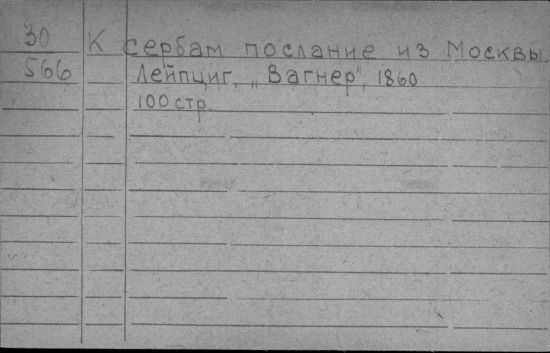 30 К сербам послание из Москвы.
566 Лейпциг, „Вагнер", 1860
100 стр.